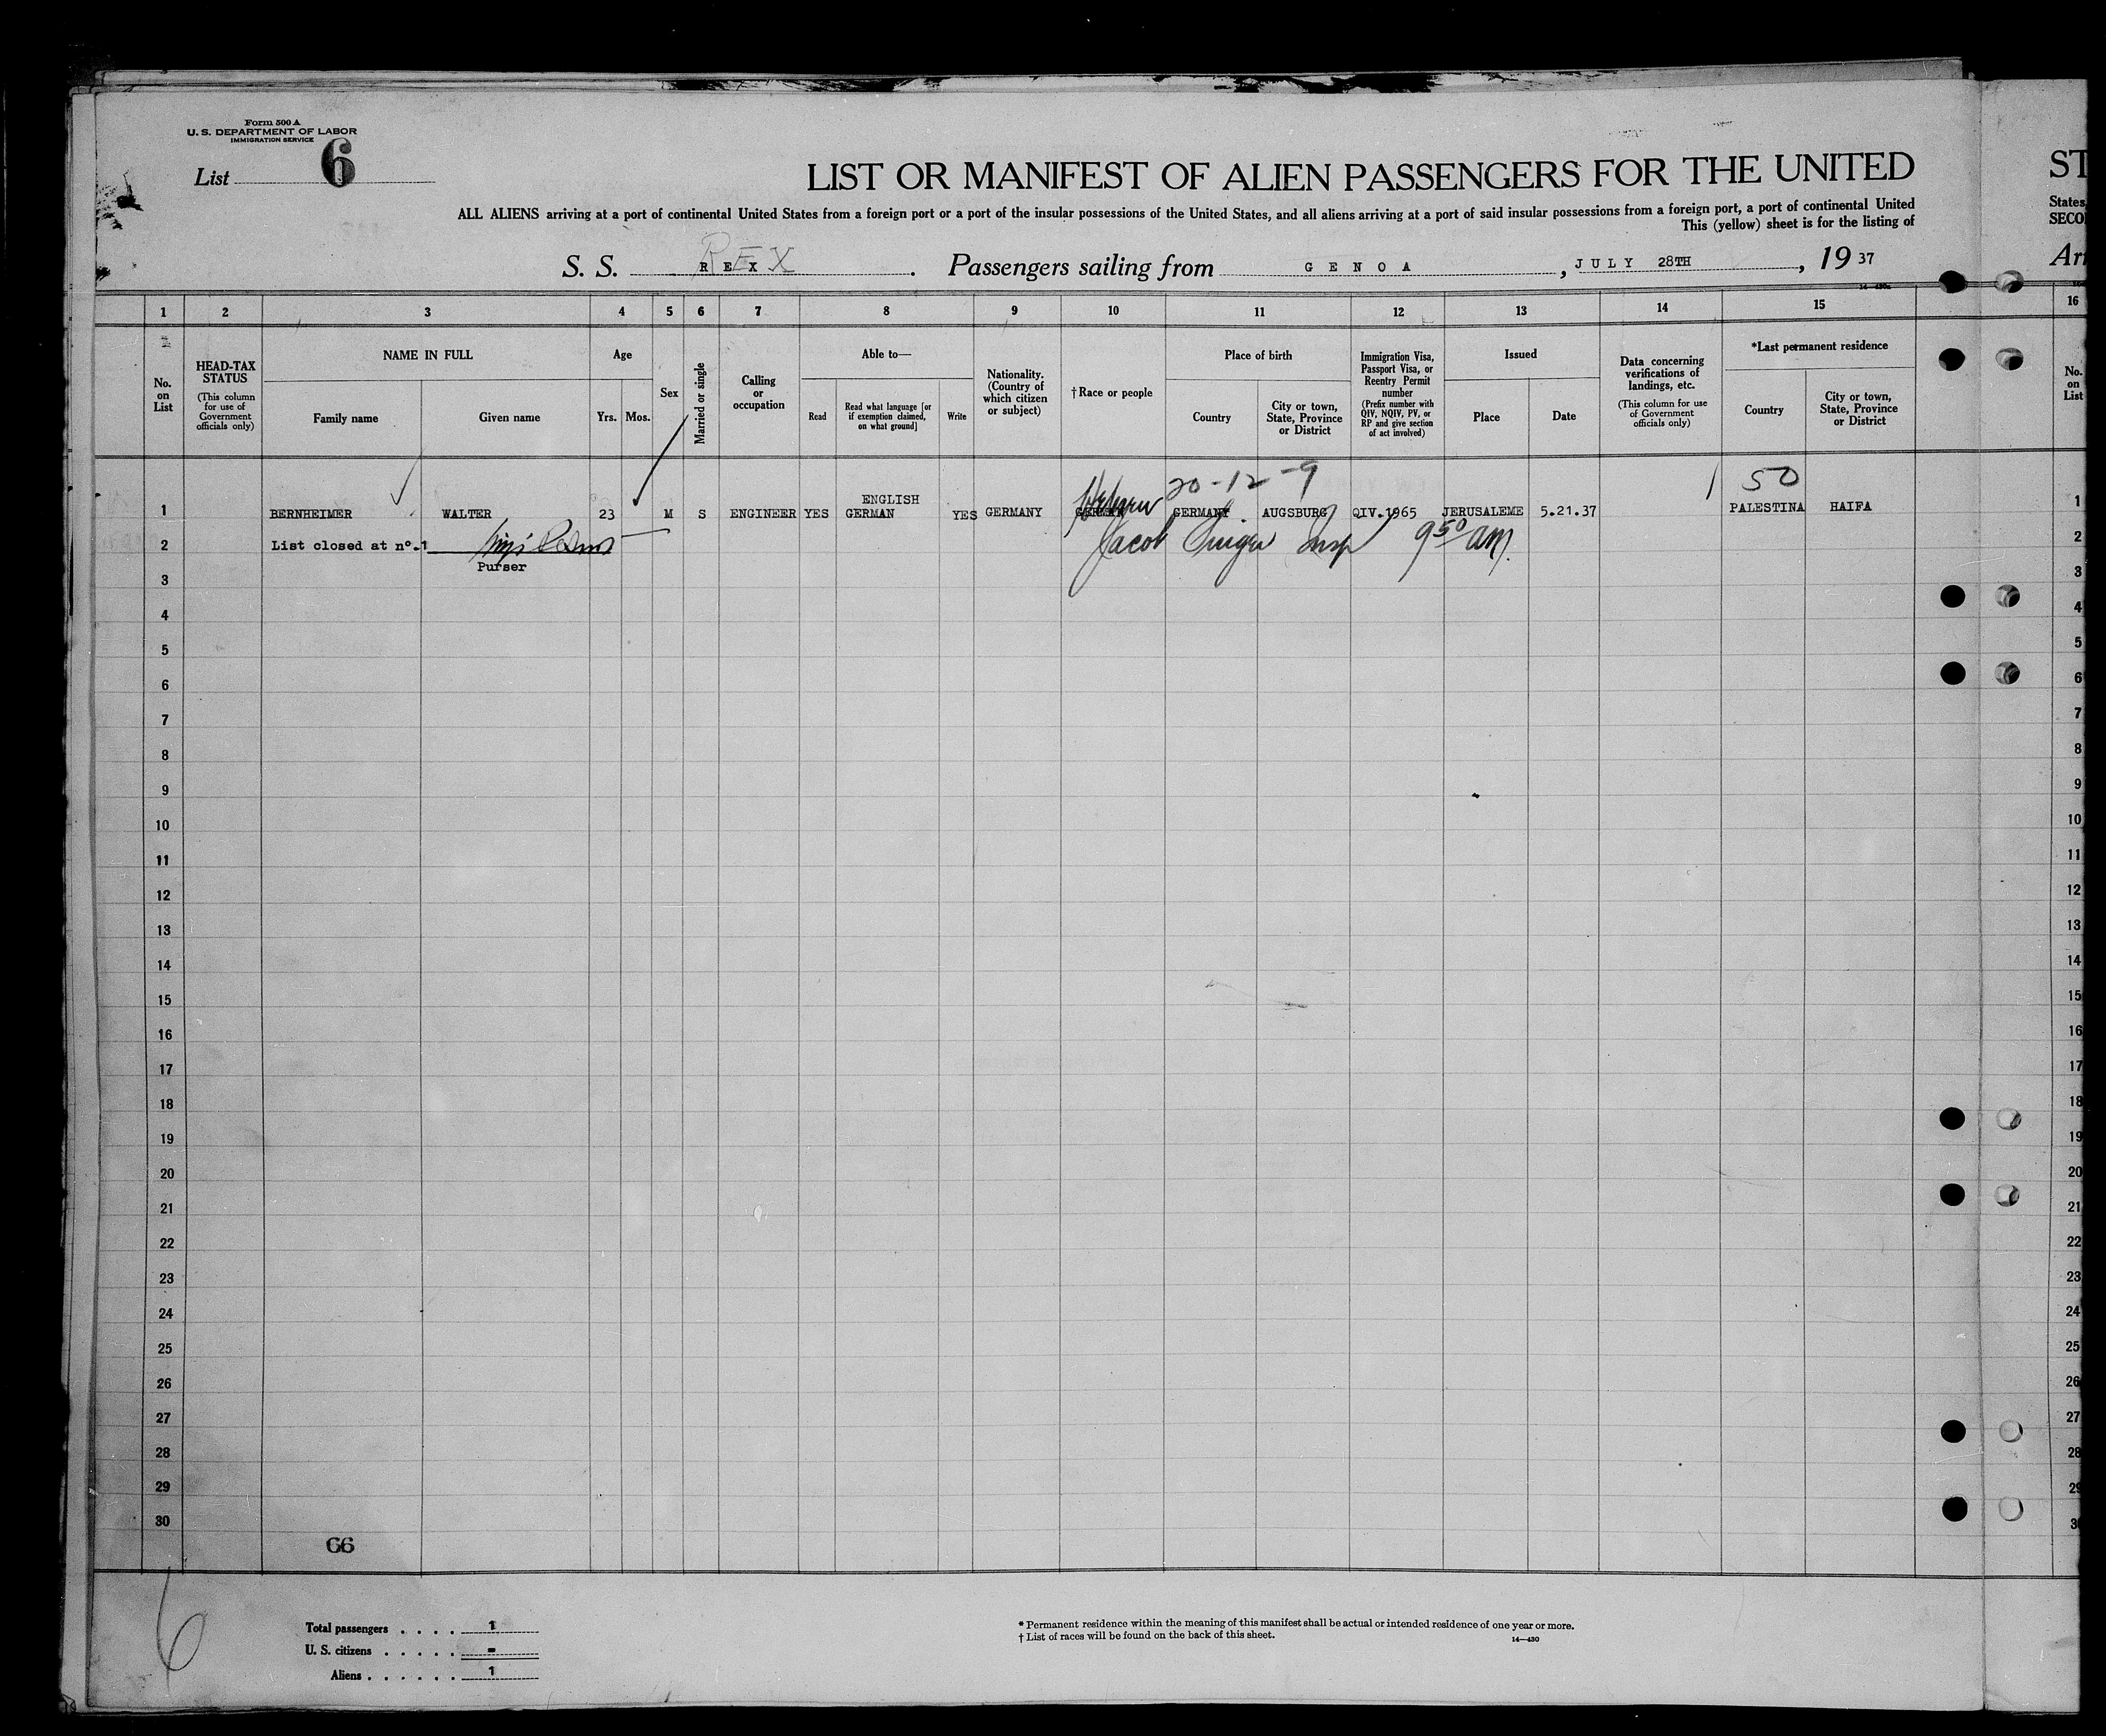 Form 500 A
U. S. DEPARTMENT OF LABOR
IMMIGRATION SERVICE
List 6
LIST OR MANIFEST OF ALIEN PASSENGERS FOR THE UNITED
ST
ALL ALIENS arriving at a port of continental United States from a foreign port or a port of the insular possessions of the United States, and all aliens arriving at a port of said insular possessions from a foreign port, a port of continental United
States
This (yellow) sheet is for the listing of
SECO
S. S. REX REX. Passengers sailing from GENOA, JULY 28TH, 19 37
Arr
1 2 3 4 5 6 7 8 9 10 11 12 13 14 15 16
No. on List
HEAD-TAX STATUS
(This column for use of Government officials only)
NAME IN FULL
Family name
Given name
Age
Yrs.
Mos.
Sex
Married or single
Calling or occupation
Able to—
Read
Read what language [or if exemption claimed, on what ground]
Write
Nationality. (Country of which citizen or subject)
†Race or people
Place of birth
Country
City or town, State, Province or District
Immigration Visa, Passport Visa, or Reentry Permit number
(Prefix number with QIV, NQIV, PV, or RP and give section of act involved)
Issued
Place
Date
Data concerning verifications of landings, etc.
(This column for use of Government officials only)
*Last permanent residence
Country
City or town, State, Province or District
No. on List
20-12-9
50
1 BERNHEIMER WALTER 23 M S ENGINEER YES ENGLISH GERMAN YES GERMANY Hebrew GERMAN GERMANY AUGSBURG QIV.1965 JERUSALEME 5.21.37 PALESTINA HAIFA 1
2 List closed at n°.1 Jacob Singer Insp 9 50 am. 2
Purser
3 3
4 4
5 5
6 6
7 7
8 8
9 9
10 10
11 11
12 12
13 13
14 14
15 15
16 16
17 17
18 18
19 19
20 20
21 21
22 22
23 23
24 24
25 25
26 26
27 27
28 28
29 29
30 3
66
6
Total passengers . . . . 1
U. S. citizens . . . . . -
Aliens . . . . . . 1
* Permanent residence within the meaning of this manifest shall be actual or intended residence of one year or more.
† List of races will be found on the back of this sheet.
14—430